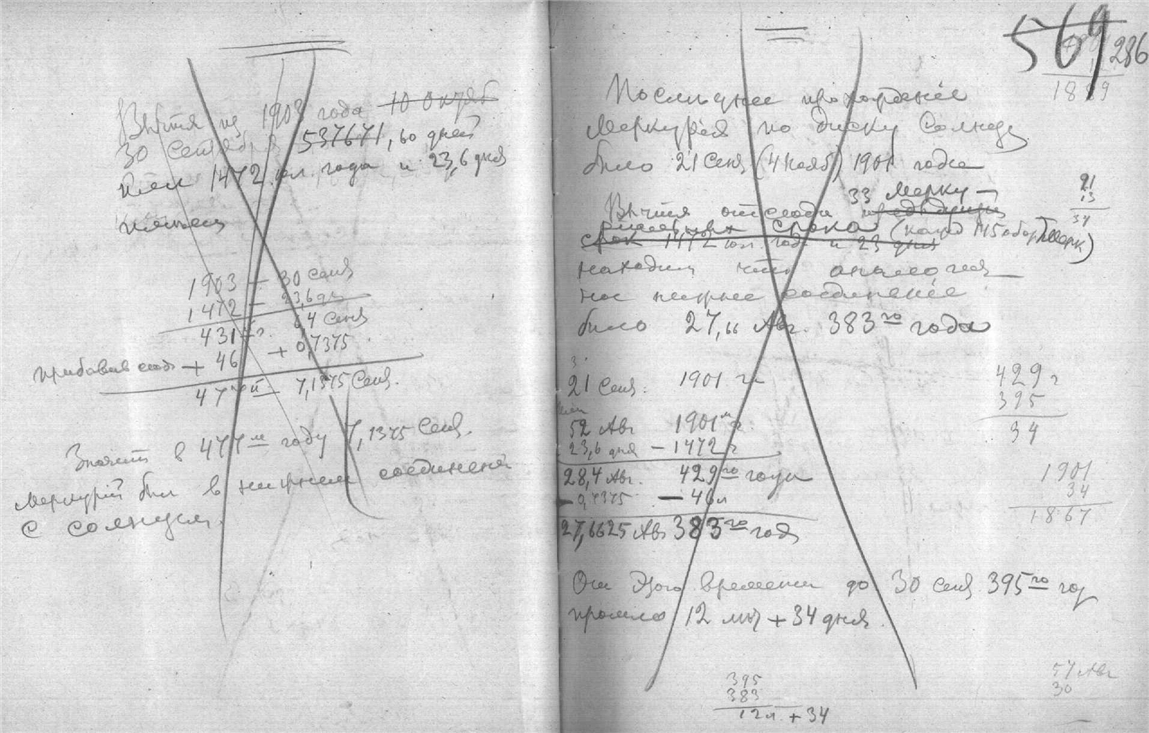 Вычтя из 1903 года 10 октяб
30 сентября 537671,60 дней
или 1472 юл. года и 23,6 дня
1903 — 30 сеня
1472 — 23,6 дн
431 — 6,4 сеня
прибавив сюда + 46 + 0,7375
477 — 7,1375 Сеня.
Значит в 477 м году 7,1375 Сеня.
Меркурий был в нижнем соединении
с солнцем.
569
286
Последнее прохождение
Меркурия по диску Солнца
было 21 Сеня (4 Нояб) 1901 года
33 мерку-
Вычтя отсюда
21
13
34
срока (кажд 145 обор Мерк)
срок 1472 юл. год и 23 дня
находим что
нижнее соединение
было 27,66 Авг. 383 го года
21 Сеня. 1901 г.
52 Авг 1901 г
23,6 дня — 1472 г
28,4 Авг. 429 го года
— 0,7375 — 46 л
27,6625 Авг 383 го год
429 г
395
34
1901
34
1867
От этого времени до 30 сеня 395 го год
прошло 12 лет + 34 дня.
395
383
12 л. + 34
57 Авг
30